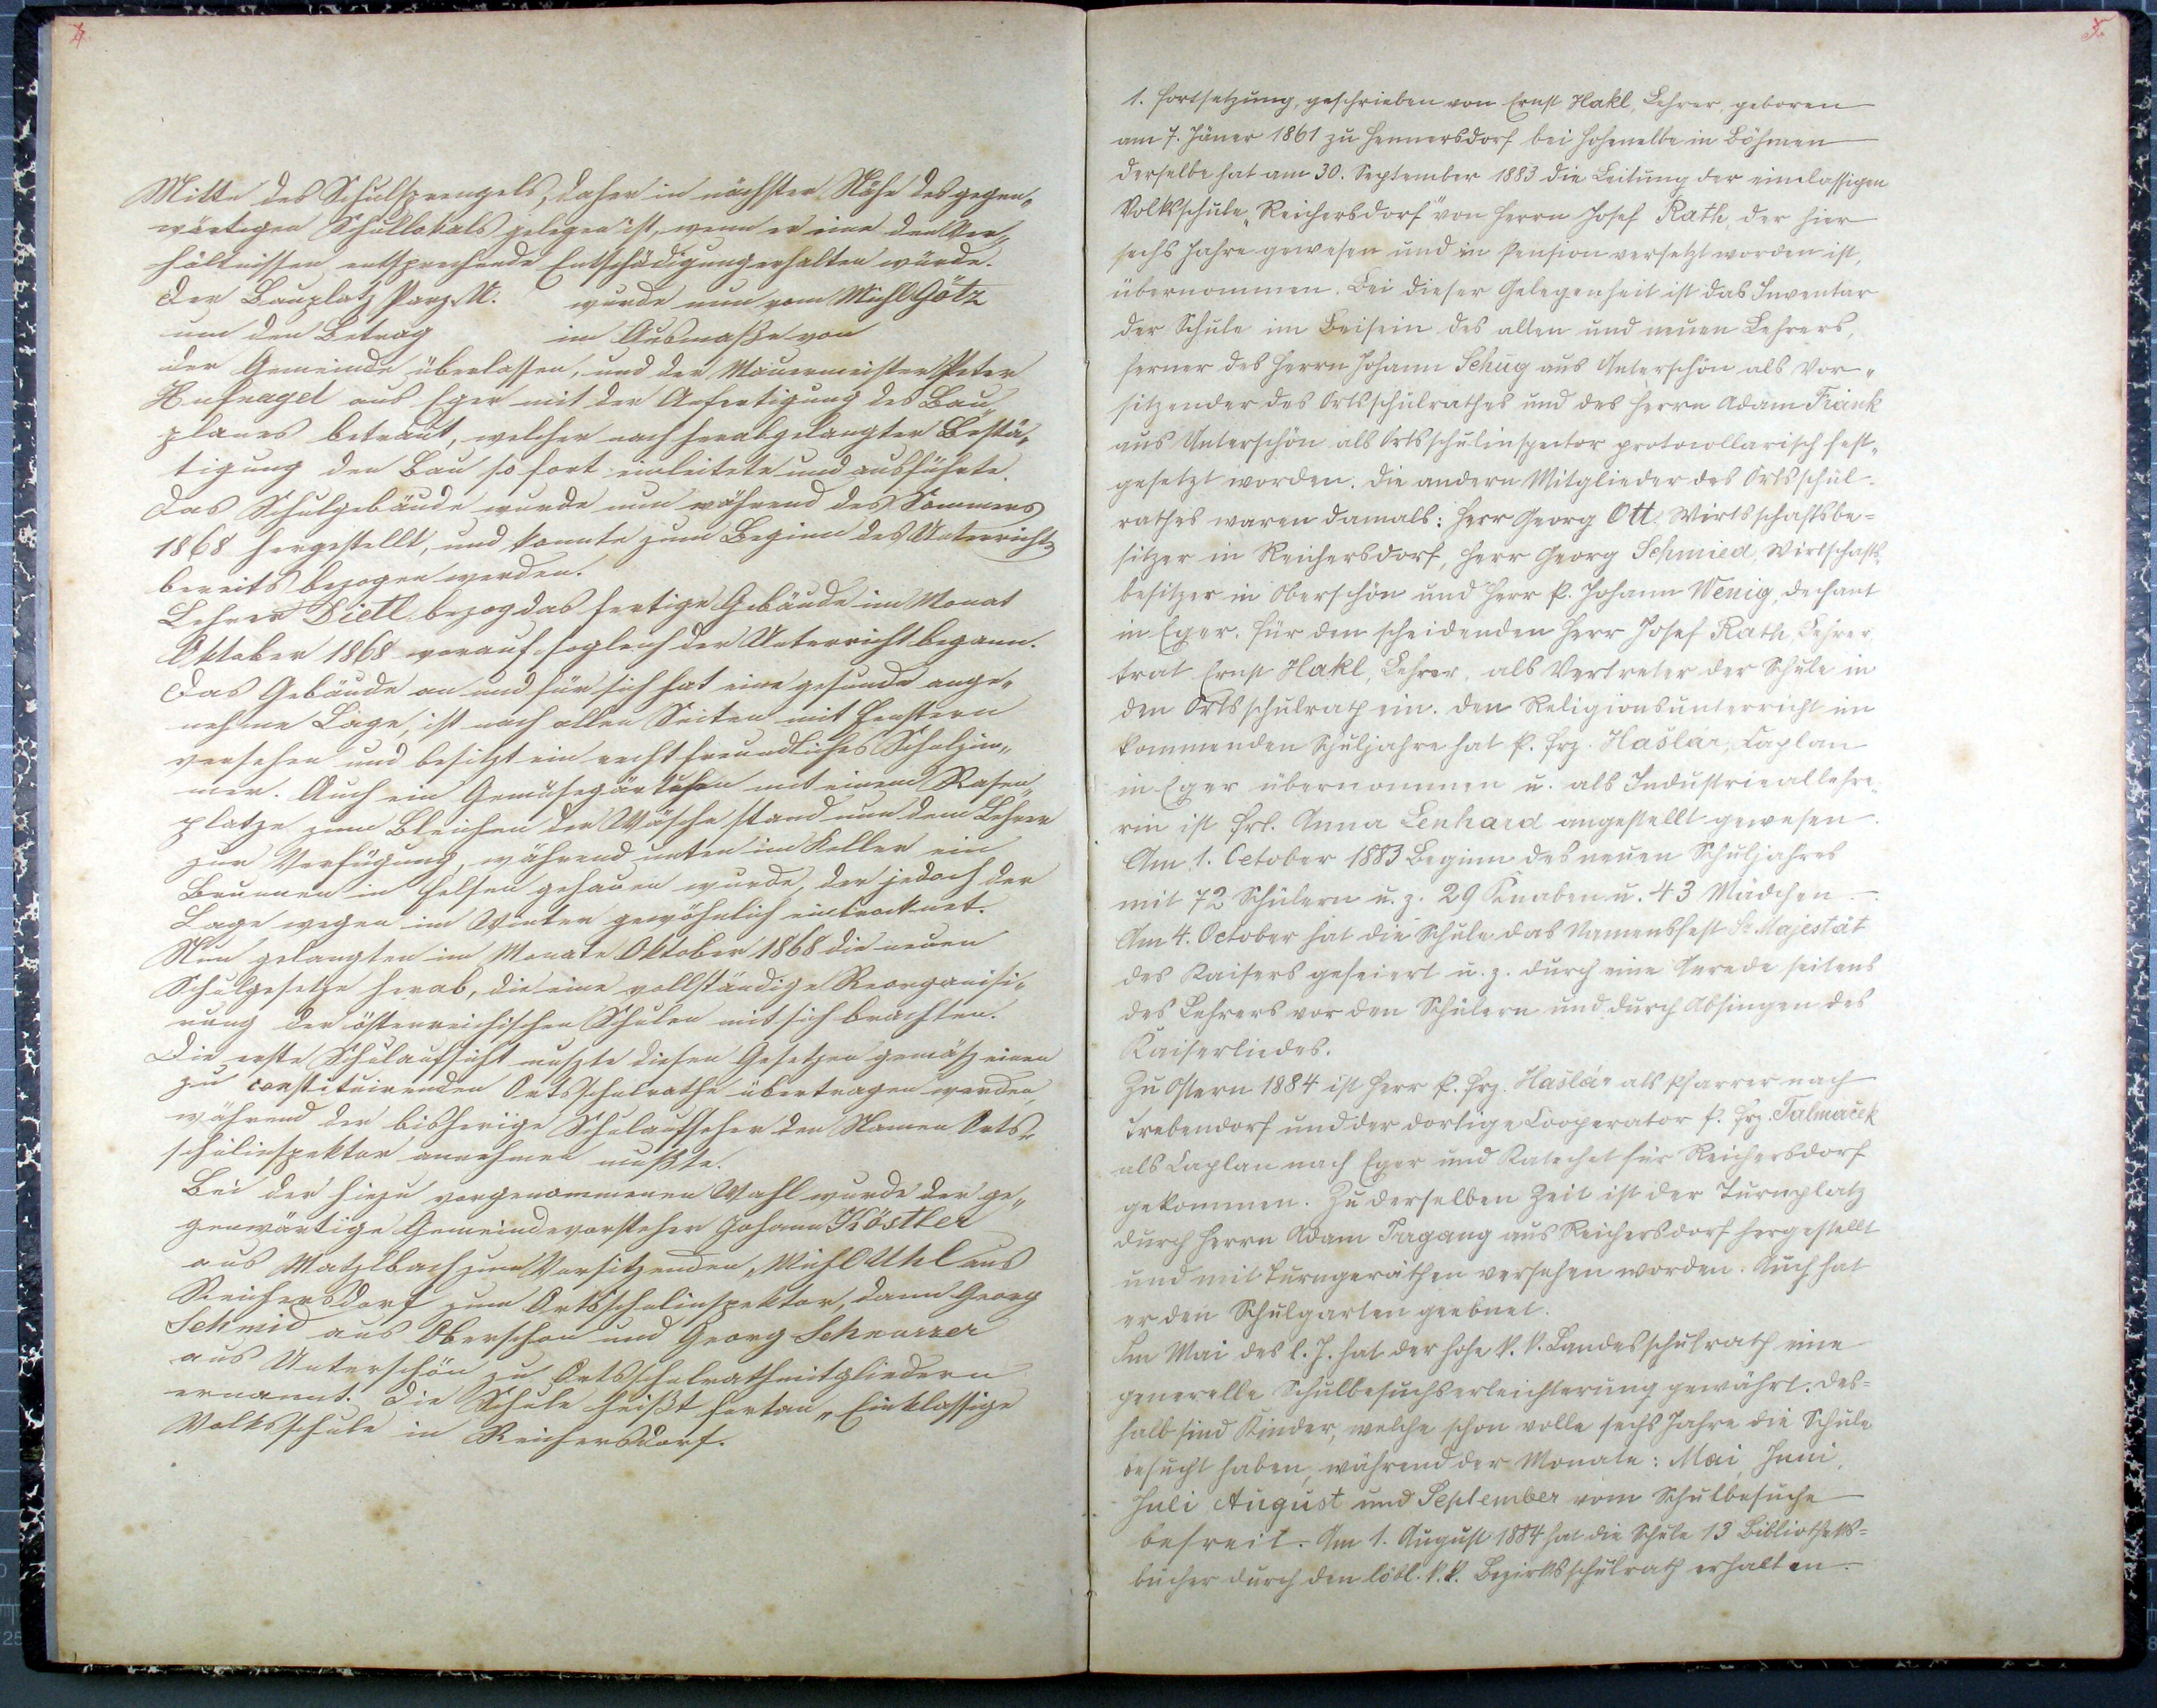 4.
Mitte des Schulsprengels, daher in nächster Nähe des gegen„
wärtigen Schullokals gelegen ist, wenn er eine den Ver„
hältnissen entsprechende Entschädigung erhalten würde.
Der Bauplatz Parz. N. wurde nun vom Michl Götz
um den Betrag im Ausmaße von
der Gemeinde überlassen, und der Maurermeister Peter
Hufnagel aus Eger mit der Anfertigung des Bau„
planes betraut, welcher nach herabgelangter Bestä„
tigung den Bau sofort einleitete und ausführte.
Das Schulgebäude wurde nun während des Sommers
1868 hergestellt, und konnte zum Beginn des Unterrichts
bereits bezogen werden.
Lehrer Dietl bezog das fertige Gebäude im Monat
Oktober 1868 worauf sogleich der Unterricht begann.
Das Gebäude an und für sich hat eine gesunde ange„
nehme Lage, ist nach allen Seiten mit Fenstern
versehen und besitzt ein recht freundliches Schulzim„
mer. Auch ein Gemüsegärtchen mit einem Rasen„
platze zum Bleichen der Wäsche stand nun dem Lehrer
zur Verfügung, während unten im Keller ein
Brunnen in Felsen gehauen wurde, der jedoch der
Lage wegen im Winter gewöhnlich eintrocknet.
Nun gelangten im Monate Oktober 1868 die neuen
Schulgesetze herab, die eine vollständige Reorganisi„
rung der österreichischen Schulen mit sich brachten.
Die erste Schulaufsicht mußte diesen Gesetzen gemäß einem
zu constituirenden Ortsschulrathe übertragen werden,
während der bisherige Schulaufseher den Namen Orts„
schulinspektor annehmen mußte.
Bei der hiezu vorgenommenen Wahl wurde der ge„
genwärtige Gemeindevorsteher Johann Köstler
aus Matzlbach zum Vorsitzenden, Michl Uhl aus
Reichersdorf zum Ortsschulinspektor, dann Georg
Schmid aus Oberschön und Georg Schnurrer
aus Unterschön zu Ortsschulrathmitgliedern
ernannt. Die Schule heißt fortan „Einklassige
Volksschule in Reichersdorf.
5.
1. Fortsetzung, geschrieben von Ernst Hakl, Lehrer, geboren
am 7. Jäner 1861 zu Hennersdorf bei Hohenelbe in Böhmen
Derselbe hat am 30. September 1883 die Leitung der einclassigen
Volksschule „Reichersdorf“ von Herrn Josef Rath, der hier
sechs Jahre gewesen und in Pension versetzt worden ist,
übernommen. Bei dieser Gelegenheit ist das Inventar
der Schule im Beisein des alten und neuen Lehrers,
ferner des Herrn Johann Schug aus Unterschön als Vor„
sitzender des Ortsschulrathes und des Herrn Adam Frank
aus Unterschön als Ortsschulinspector protocollarisch fest„
gesetzt worden. Die andern Mitglieder des Ortsschul-
rathes waren damals: Herr Georg Ott, Wirtschaftsbe=
sitzer in Reichersdorf, Herr Georg Schmied, Wirtschafts„
besitzer in Oberschön und Herr P. Johann Wenig, Dechant
in Eger. Für den scheidenden Herr Josef Rath, Lehrer,
trat Ernst Hakl, Lehrer, als Vertreter der Schule in
den Ortsschulrath ein. Den Religionsunterricht im
kommenden Schuljahre hat P. Frz. Hašlar, Caplan
in Eger übernommen u. als Industrieallehre„
rin ist Frl. Anna Lenhard angestellt gewesen.
Am 1. October 1883 Beginn des neuen Schuljahres
mit 72 Schülern u. z. 29 Knaben u. 43 Mädchen.
Am 4. October hat die Schule das Namensfest Sr Majestät
des Kaisers gefeiert u. z. durch eine Anrede seitens
des Lehrers vor den Schülern und durch Absingen des
Kaiserliedes.
Zu Ostern 1884 ist Herr P. Frz. Hašlár als Pfarrer nach
Trebendorf und der dortige Cooperator P. Frz. Talmaček
als Caplan nach Eger und Katechet für Reichersdorf
gekommen. Zu derselben Zeit ist der Turnplatz
durch Herrn Adam Irrgang aus Reichersdorf hergestellt
und mit Turngeräthen versehen worden. Auch hat
er den Schulgarten geebnet.
Im Mai des l. J. hat der hohe k. k. Landesschulrath eine
generelle Schulbesuchserleichterung gewährt. Des=
halb sind Kinder, welche schon volle sechs Jahre die Schule
besucht haben, während der Monate: Mai, Juni,
Juli August und September vom Schulbesuche
befreit. Am 1. August 1884 hat die Schule 13 Bibliotheks=
bücher durch den löbl. k. k. Bezirksschulrath erhalten.